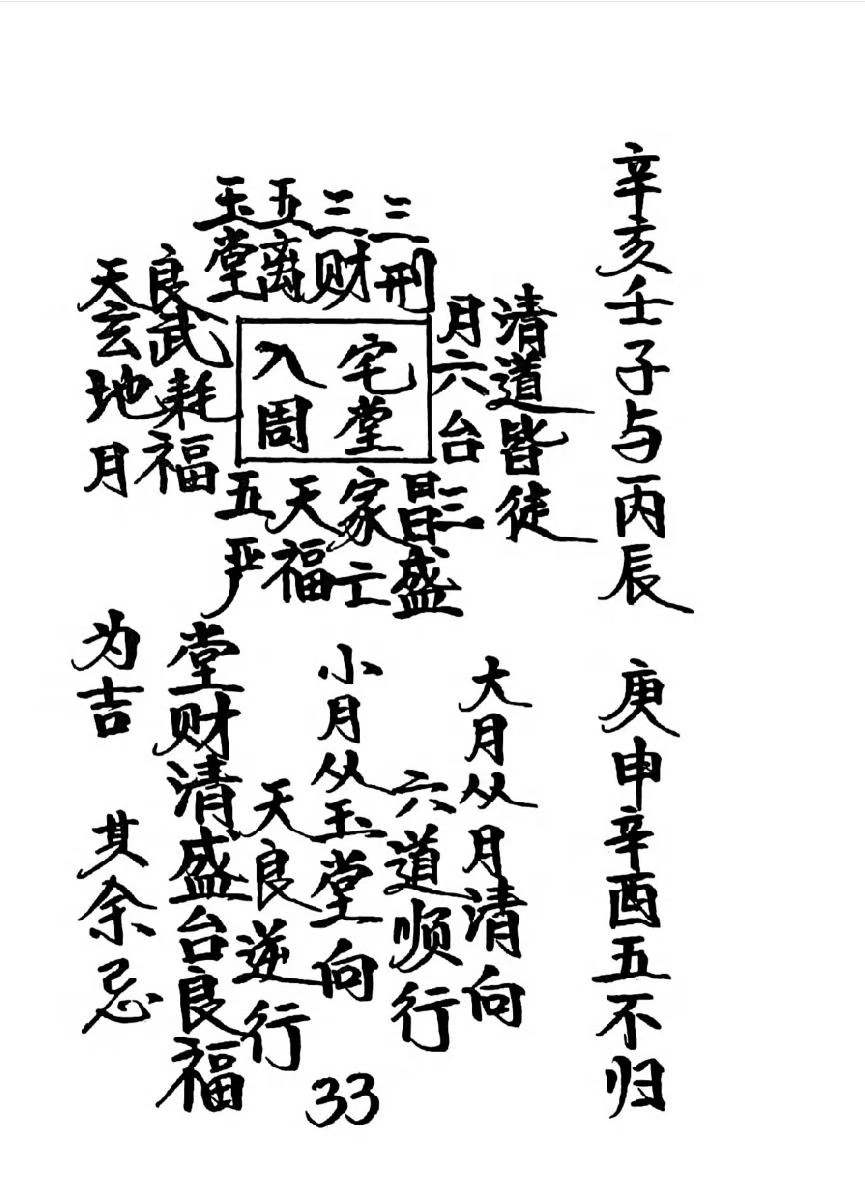 辛亥壬子与丙辰 庚申辛酉五不归
清道皆徒
月六台三
三刑
三财
五离
玉堂
宅堂
入周
昌盛
家亡
天福
五严
良武耗福
天玄地月
大月从月清向
六道顺行
小月从玉堂向
天良逆行
堂财清盛台良福
为吉 其余忌
33